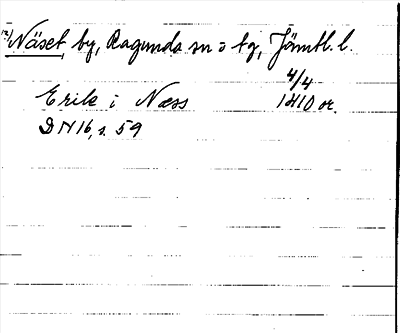 Näset, by, Ragunda sn o tg, Jämtl. l.
4/4
Erik i Næss 1410 or.
DN 16, s. 59